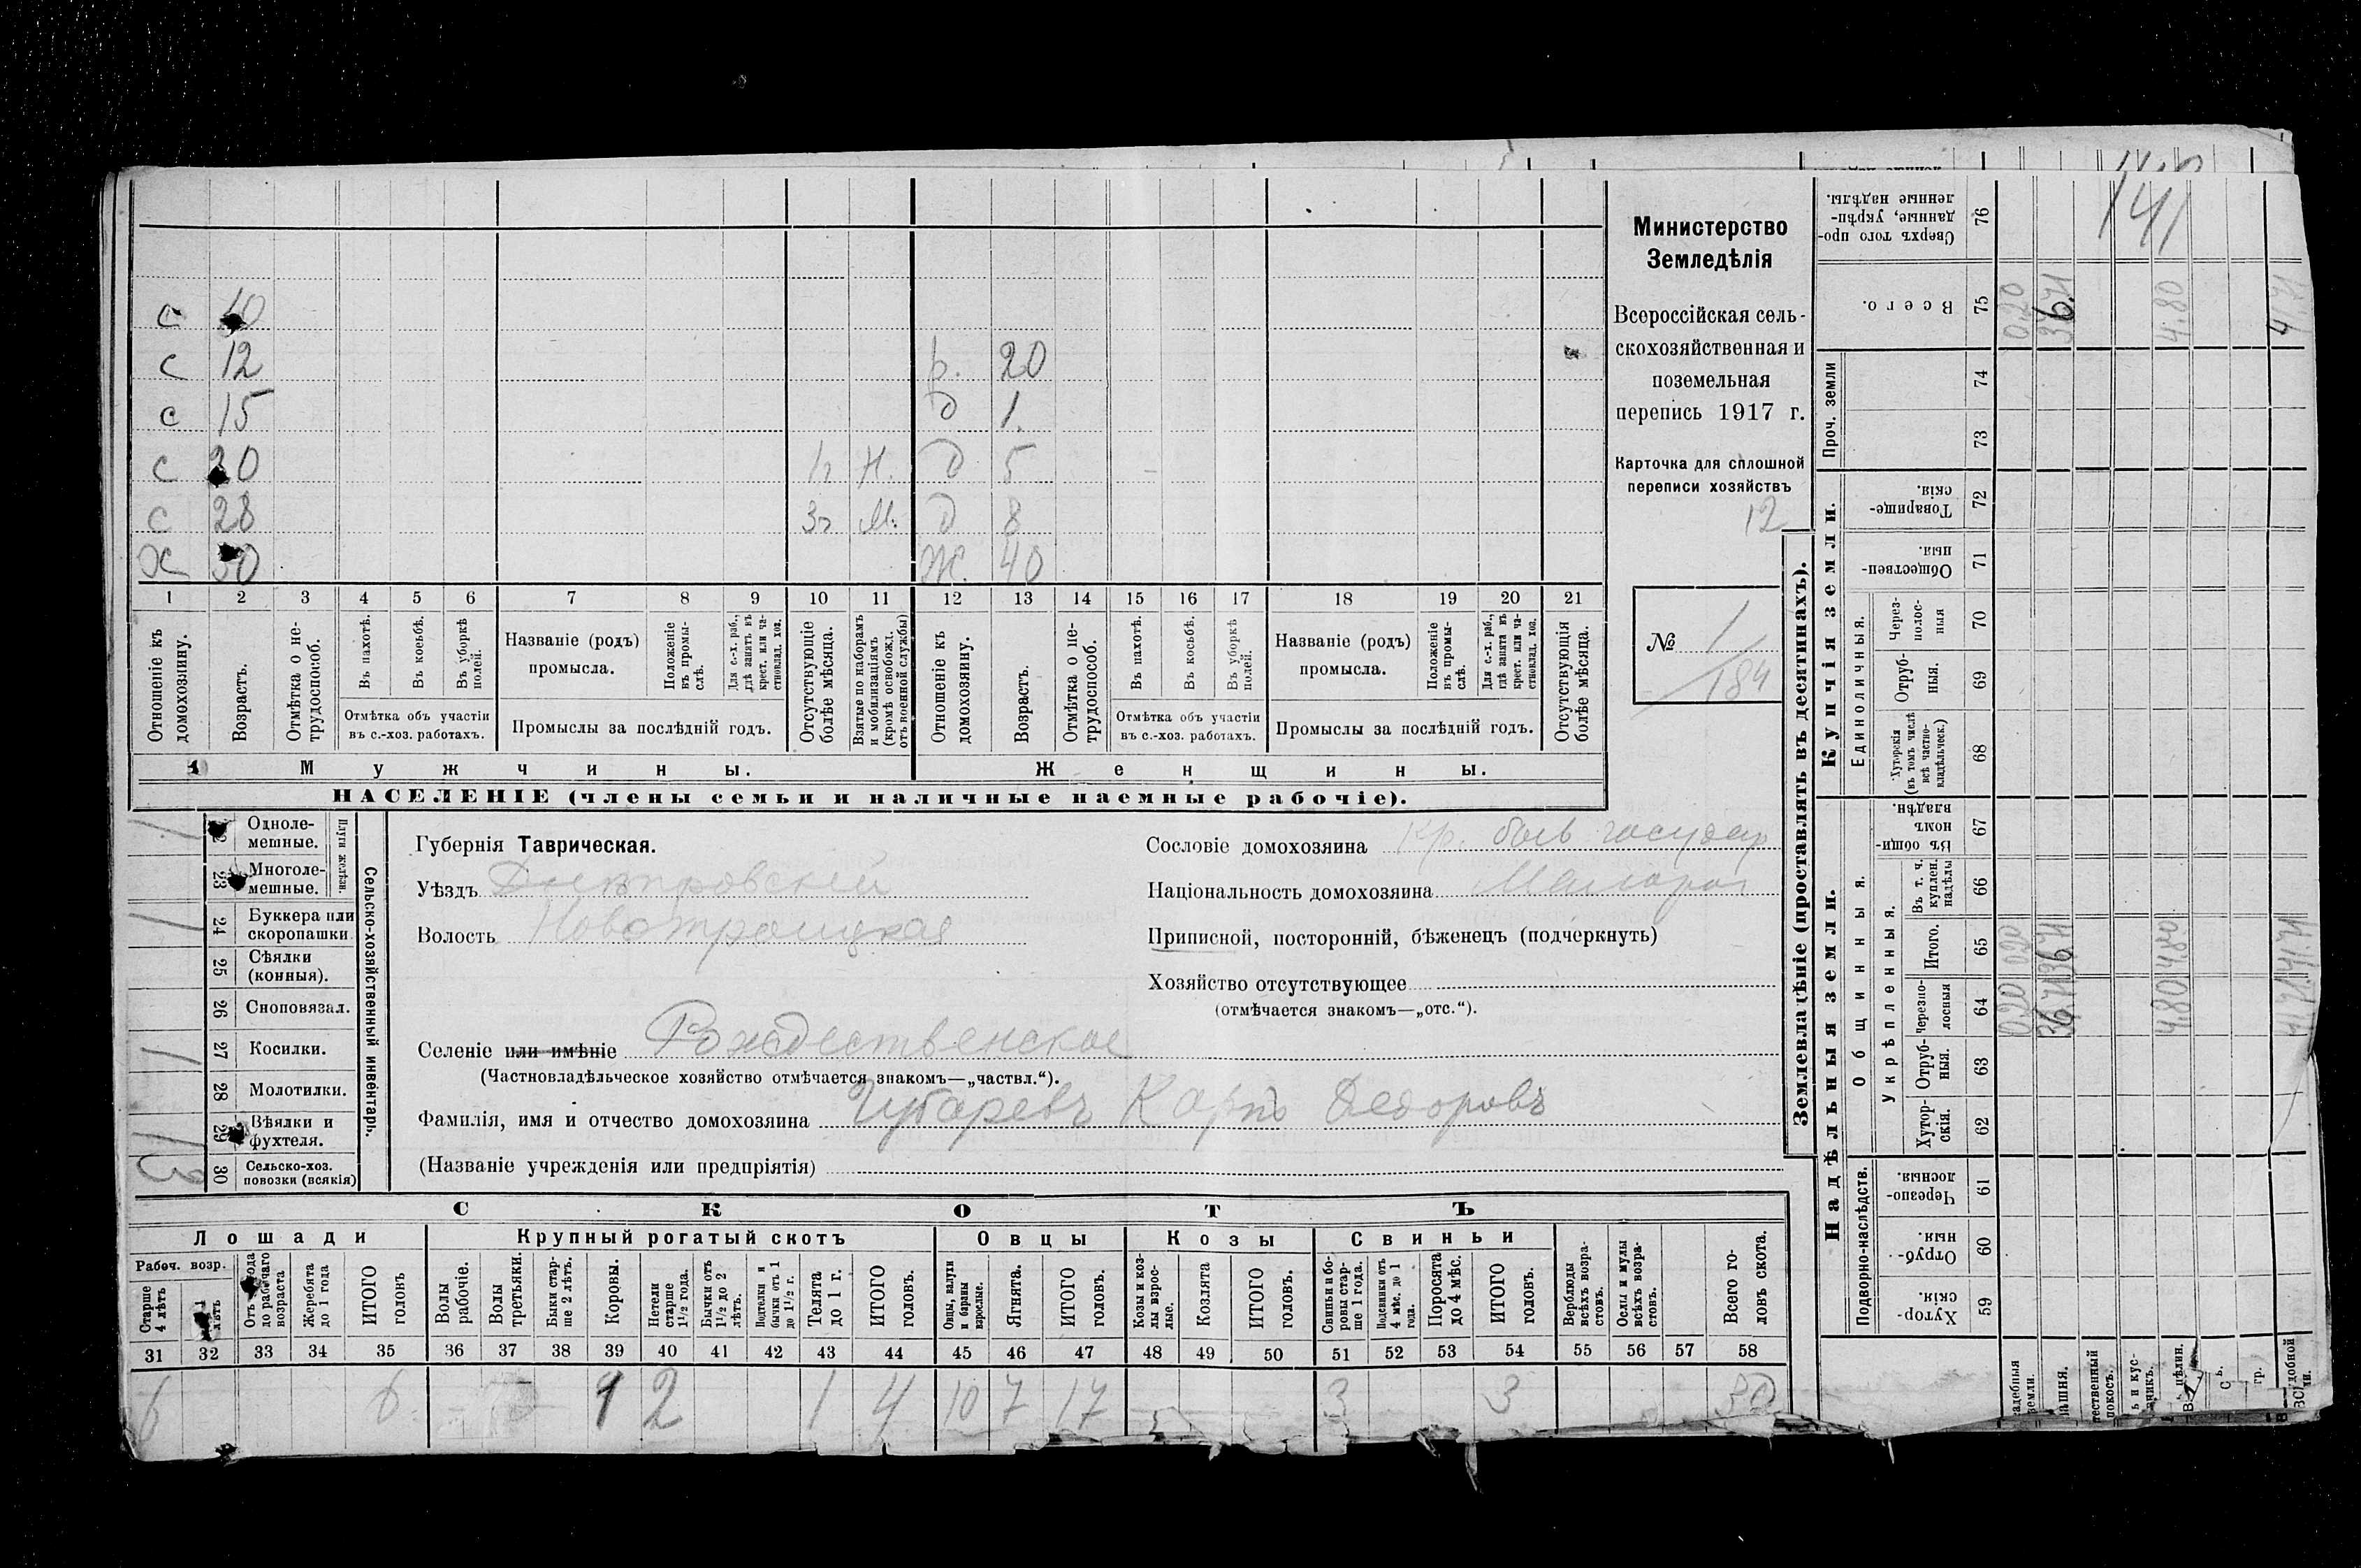 с 10
с 12 р. 20
с 15 д 1.
с 20 Н. д 5
с 28 М. д 8
Х 50 Ж. 40
1 2 3 4 5 6 7 8 9 10 11 12 13 14 15 16 17 18 19 20 21
Отношеніе къ домохозяину.
Возрастъ.
Отмѣтка о нетрудоспособ.
Въ пахотѣ.
Въ косьбѣ.
Въ уборкѣ полей.
Отмѣтка объ участіи
въ с.-хоз. работахъ.
Названіе (родъ)
промысла.
Положеніе въ промыслѣ.
Для с.-х. раб., гдѣ занятъ въ крест. или частновлад. хоз.
Промыслы за послѣдній годъ.
Отсутствующіе болѣе мѣсяца.
Взятые по наборамъ и мобилизаціямъ (кромѣ освобожд. отъ военной службы)
Отношеніе къ домохозяину.
Возрастъ.
Отмѣтка о нетрудоспособ.
Въ пахотѣ.
Въ косьбѣ.
Въ уборкѣ полей.
Отмѣтка объ участіи
въ с.-хоз. работахъ.
Названіе (родъ)
промысла.
Положеніе въ промыслѣ.
Для с.-х. раб., гдѣ занята въ крест. или частновлад. хоз.
Промыслы за послѣдній годъ.
Отсутствующія болѣе мѣсяца.
Мужчины. Женщины.
НАСЕЛЕНІЕ (члены семьи и наличные наемные рабочіе).
Министерство
Земледѣлія
Всероссійская сель-
скохозяйственная и
поземельная
перепись 1917 г.
Карточка для сплошной
переписи хозяйствъ
12
№ 1
184
Одноле-
мешные.
Многоле-
мешные.
Плуги желѣзн.
1 24 Буккера или
скоропашки
25 Сѣялки
(конныя).
26 Сноповязал.
1 27 Косилки.
28 Молотилки.
1 29 Вѣялки и
фухтеля.
3 30 Сельско-хоз.
повозки (всякія)
Сельско-хозяйственный инвентарь.
Губернія Таврическая.
Уѣздъ Днѣпровскій
Волость Новотроицкая
Селеніе или имѣніе Рождественское
(Частновладѣльческое хозяйство отмѣчается знакомъ—„частвл.“).
Фамилія, имя и отчество домохозяина Чубаревъ Карпъ Федоровъ
(Названіе учрежденія или предпріятія)
Сословіе домохозяина кр. быв государ
Національность домохозяина Малорос
Приписной, посторонній, бѣженецъ (подчеркнуть)
Хозяйство отсутствующее
(отмѣчается знакомъ—„отс.“).
СКОТЪ
Лошади Крупный рогатый скотъ Овцы Козы Свиньи
Рабоч. возр.
Старше 4 лѣтъ
Жеребята до 1 года
ИТОГО головъ
Волы рабочіе.
Волы третьяки.
Быки старше 2 лѣтъ.
Коровы.
Нетели старше 1½ года.
Бычки отъ 1½ до 2 лѣтъ.
Подтелки и бычки отъ 1 до 1½ г.
Телята до 1 г.
ИТОГО головъ.
Овцы, валухи и бараны взрослые.
Ягнята.
ИТОГО головъ.
Козы и козлы взрослые.
Козлята
ИТОГО головъ.
Свиньи и боровы старше 1 года.
Подсвинки отъ 4 мѣс. до 1 года.
Поросята до 4 мѣс.
ИТОГО головъ.
Верблюды всѣхъ возрастовъ.
Ослы и мулы всѣхъ возрастовъ.
Всего головъ скота.
31 32 33 34 35 36 37 38 39 40 41 42 43 44 45 46 47 48 49 50 51 52 53 54 55 56 57 58
6 6 1 2 1 4 10 7 17 3 3 30
Землевладѣніе (проставлять въ десятинахъ).
Надѣльныя земли. Купчія земли.
Проч. земли
Подворно-наслѣдств.
Общинныя.
Укрѣпленныя.
Единоличныя.
Хуторскія. 59
Отрубныя. 60
Черезполосныя. 61
Хуторскія. 62
Отрубныя. 63
Черезполосныя 64
Итого. 65
Въ т. ч. куплен. надѣлы 66
Въ общинномъ владѣн. 67
Хуторскія (въ томъ числѣ всѣ частновладѣльческ.) 68
Отрубныя. 69
Черезполосныя 70
Общественныя. 71
Товарищескія. 72
73
74
Всего. 75
Сверхъ того проданные, укрѣпленные надѣлы. 76
0.20 0.20 0.20
36.71 36.71 36.71
4.80 4.80 4.80
41.71 41.71 41.71
141